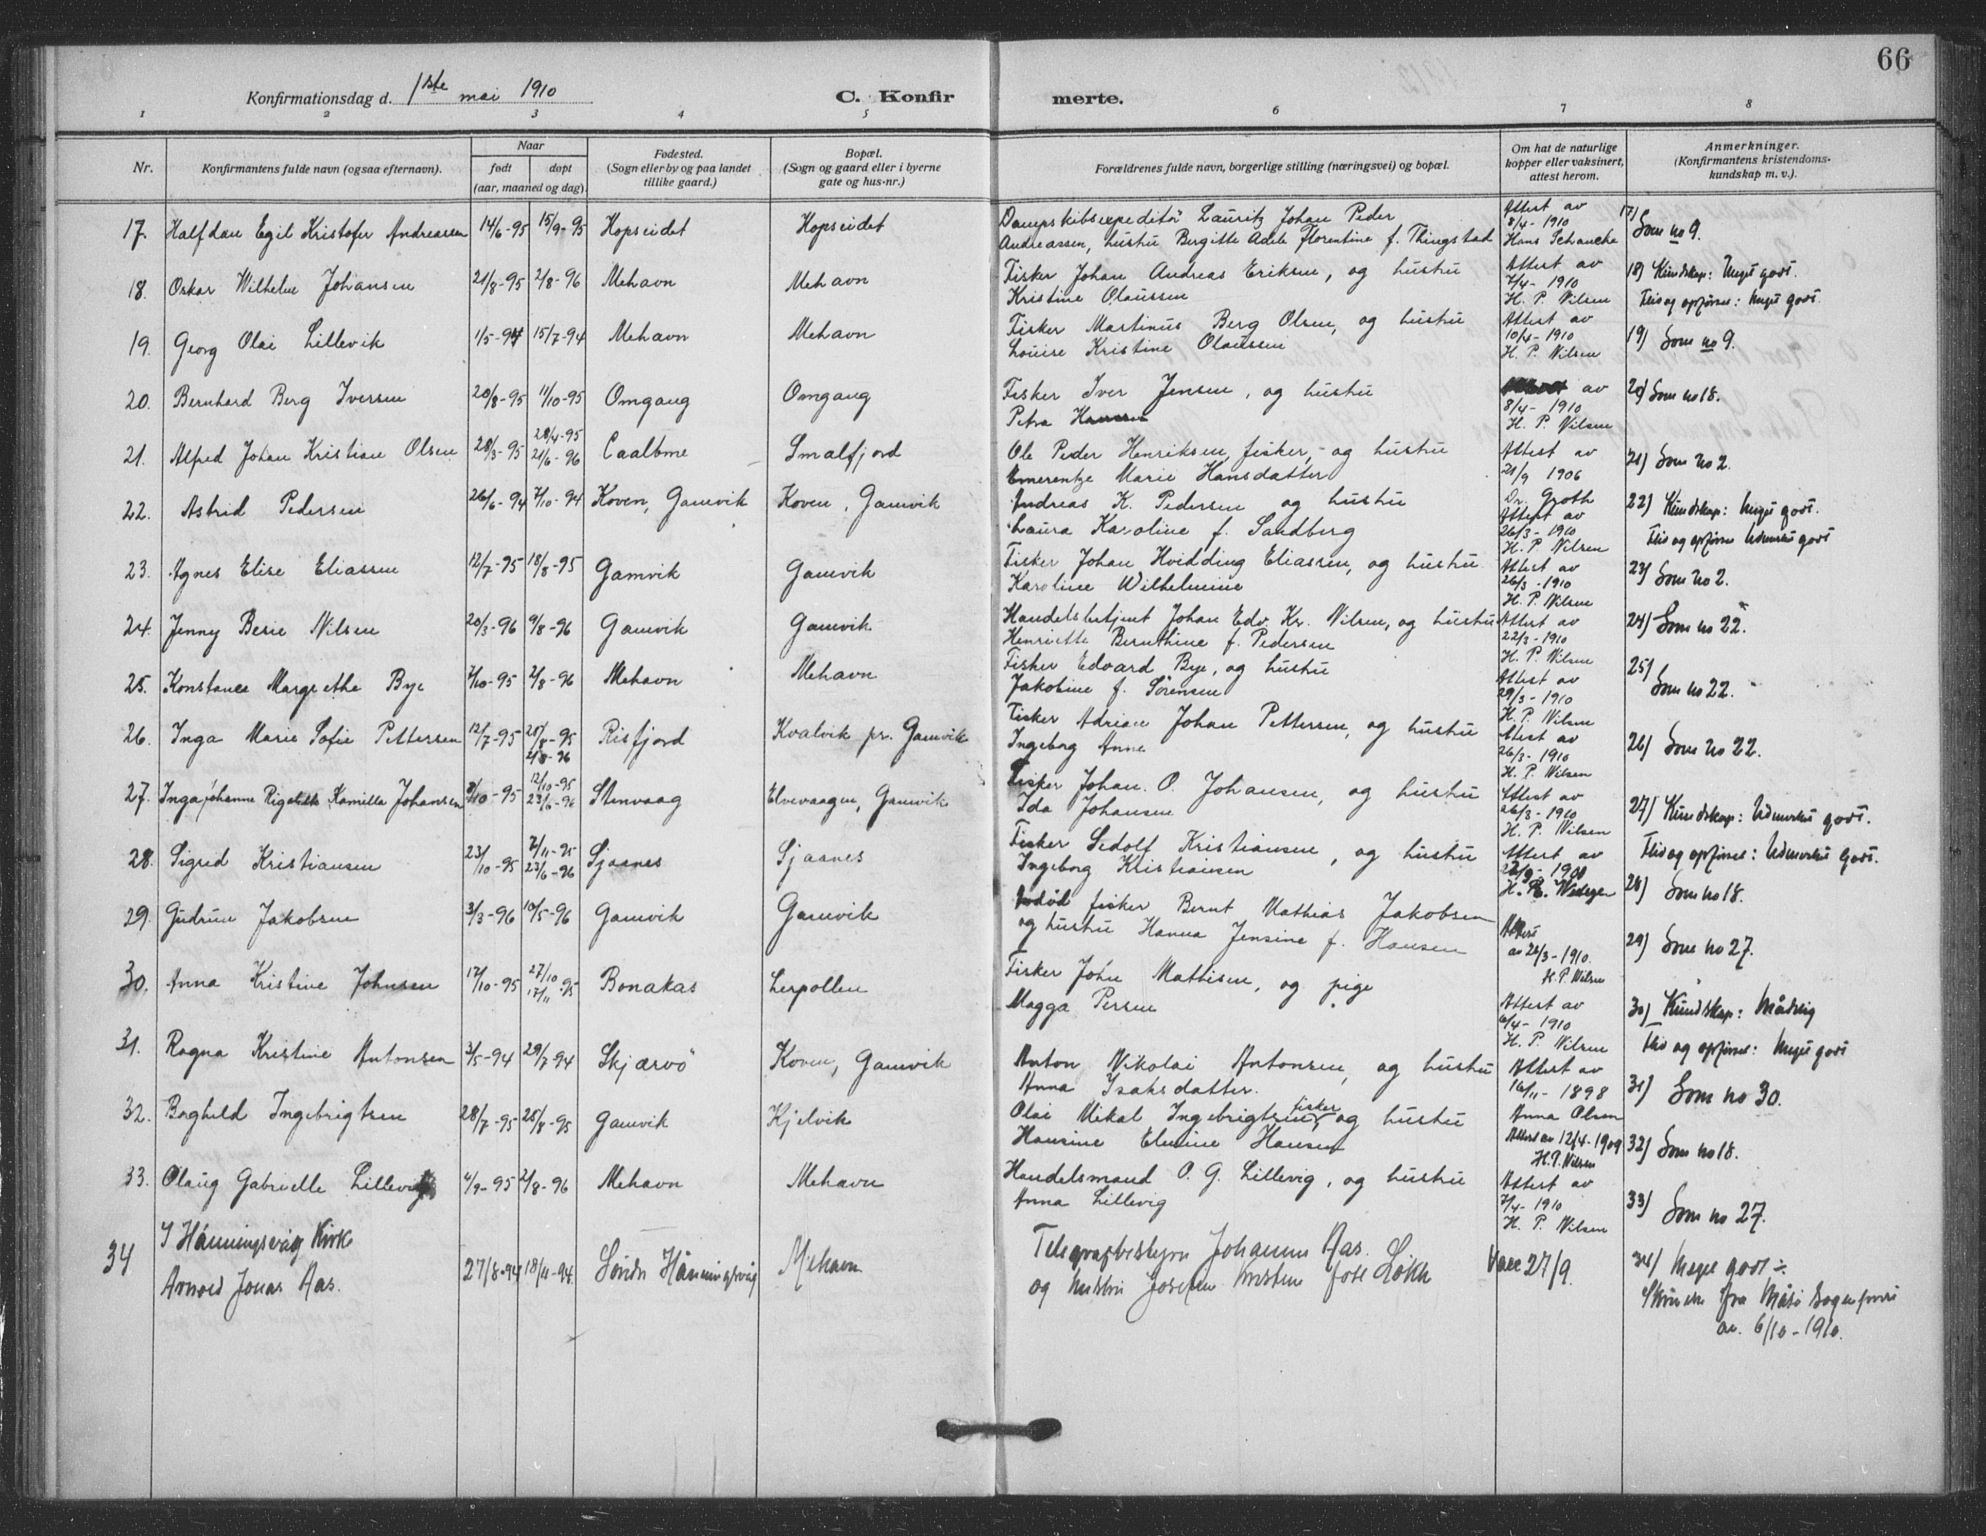 66
Konfirmationsdag d. 1ste mai 1910 C. Konfirmerte.
1 2 3 4 5 6 7 8
Nr. Konfirmantens fulde navn (ogsaa efternavn). Naar født døpt (aar, maaned og dag). Fødested. (Sogn eller by og paa landet tillike gaard.) Bopæl. (Sogn og gaard eller i byerne gate og hus-nr.) Forældrenes fulde navn, borgerlige stilling (næringsvei) og bopæl. Om hat de naturlige kopper eller vaksinert, attest herom. Anmerkninger. (Konfirmantens kristendomskundskap m. v.).
17. Halfdan Egil Kristofer Andreassen 14/6-95 15/9-95 Hopseidet Hopseidet Dampskibsexpeditör Lauritz Johan Peder Attest av 17) Som no 9.
Andreassen, hustru Bergitte Adele Florentine f. Thingstad 8/4-1910 Hans Schancke
18. Oskar Wilhelm Johansen 21/8-95 2/8-96 Mehavn Mehavn Fisker Johan Andreas Eriksen, og hustru Attest av 18) Kundskap: Meget godt.
Kristine Olaussen 7/4-1910 H. P. Nilsen Flid og opførsel: Meget godt.
19. Georg Olai Lillevik 1/5-94 15/7-94 Mehavn Mehavn Fisker Martinus Berg Olsen, og hustru Attest av 19) Som no 9.
Louise Kristine Olaussen 10/4-1910 H. P. Nilsen
20. Bernhard Berg Iversen 20/8-95 11/10-95 Omgang Omgang Fisker Iver Jensen, og hustru Attest av 20) Som no 18.
Petra Hansen 8/4-1910 H. P. Nilsen
21. Alfred Johan Kristian Olsen 28/3-95 28/4-95 21/6-96 Caalbme Smalfjord Ole Peder Henriksen, fisker, og hustru Attest av 21) Som no 2.
Emerentze Marie Hansdatter 21/9 1906 Dr. Groth
22. Astrid Pedersen 26/6-94 7/10-94 Koven, Gamvik Koven, Gamvik Andreas K. Pedersen og hustru Attest av 22) Kundskap: Meget godt.
Laura Karoline f. Sandberg 26/3-1910 H. P. Nilsen Flid og opførsel Udmerket godt
23. Agnes Elise Eliassen 12/7-95 18/8-95 Gamvik Gamvik Fisker Johan Hvidding Eliassen, og hustru Attest av 23) Som no 2.
Karoline Wilhelmine 26/3-1910 H. P. Nilsen
24. Jenny Berie Nilsen 20/3-96 9/8-96 Gamvik Gamvik Handelsbetjent Johan Edv. Kr. Nilsen, og hustru Attest av 24) Som no 22.
Henriette Bernthine f. Pedersen 22/3-1910 H. P. Nilsen
25. Konstance Margrethe Bye 7/10-95 2/8-96 Mehavn Mehavn Fisker Edvard Bye, og hustru Attest av 25) Som no 22.
Jakobine f. Sörensen 29/3-1910 H. P. Nilsen
26. Inga Marie Sofie Pettersen 12/7-95 25/8-95 2/8-96 Risfjord Kvalvik pr. Gamvik Fisker Adrian Johan Pettersen, og hustru Attest av 26) Som no 22.
Ingeborg Anne 26/3-1910 H. P. Nilsen
27. Inga Johanne Kamilla Johansen 8/10-95 12/10-95 23/6-96 Stenvaag Elvevaagen, Gamvik Fisker Johan. O. Johansen, og hustru Attest av 27) Kundskap: Udmerket godt.
Ida Johansen 26/3-1910 H. P. Nilsen Flid og opførsel: Udmerket godt.
28. Sigrid Kristiansen 23/10-95 7/11-95 23/6-96 Sjaanes Sjaanes Fisker Sedolf Kristiansen, og hustru Attest av 28) Som no 18.
Ingeborg Kristiansen
29. Gudrun Jakobsen 3/3-96 10/5-96 Gamvik Gamvik fisker Bernt Mathias Jakobsen Attest 29) Som no 27.
og hustru Hanna Jensine f. Hansen av 26/3-1910. H. P. Nilsen
30. Anna Kristine Johnsen 17/10-95 27/10 17/11-95 Bonakas Lerpollen Fisker John Mattisen, og pige Attest av 30) Kundskap: Mådelig
Magga Persen 6/4-1910 H. P. Nilsen Flid og opførsel: Meget godt
31. Ragna Kristine Antonsen 3/5-94 29/7-94 Skjærvö Koven, Gamvik Anton Nikolai Antonsen, og hustru Attest av 31) Som no 30.
Anna Isaksdatter. 16/11-1898 Anna Olsen
32. Borghild Ingebrigtsen 28/7-95 25/8-95 Gamvik Kjelvik Olai Mikal Ingebrigtsen, fisker og hustru Attest av 12/4-1909 32) Som no 18.
Hansine Elmine Hansen H. P. Nilsen
33. Olaug Gabrielle Lillevig 4/9-95 2/8-96 Mehavn Mehavn Handelsmand O. G. Lillevig, og hustru Attest av 33) Som no 27.
Anna Lillevig 7/4-1910 H. P. Nilsen
34 I Hånningsvåg Kirk
Arnold Jonas Aas. 27/8-94 18/11-94. Söndr Hånningsvåg Mehavn Telegrafbestyrer Johannes Aas. Vacc 27/9. 34) Meget godt
og hustru Josefine Kirstine född Lökke fra Måsö Sogneprest
av. 6/10-1910.